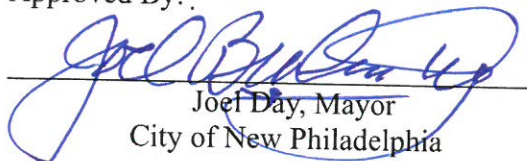 Approved By:
Joel
Joel Day, Mayor
City of New Philadelphia